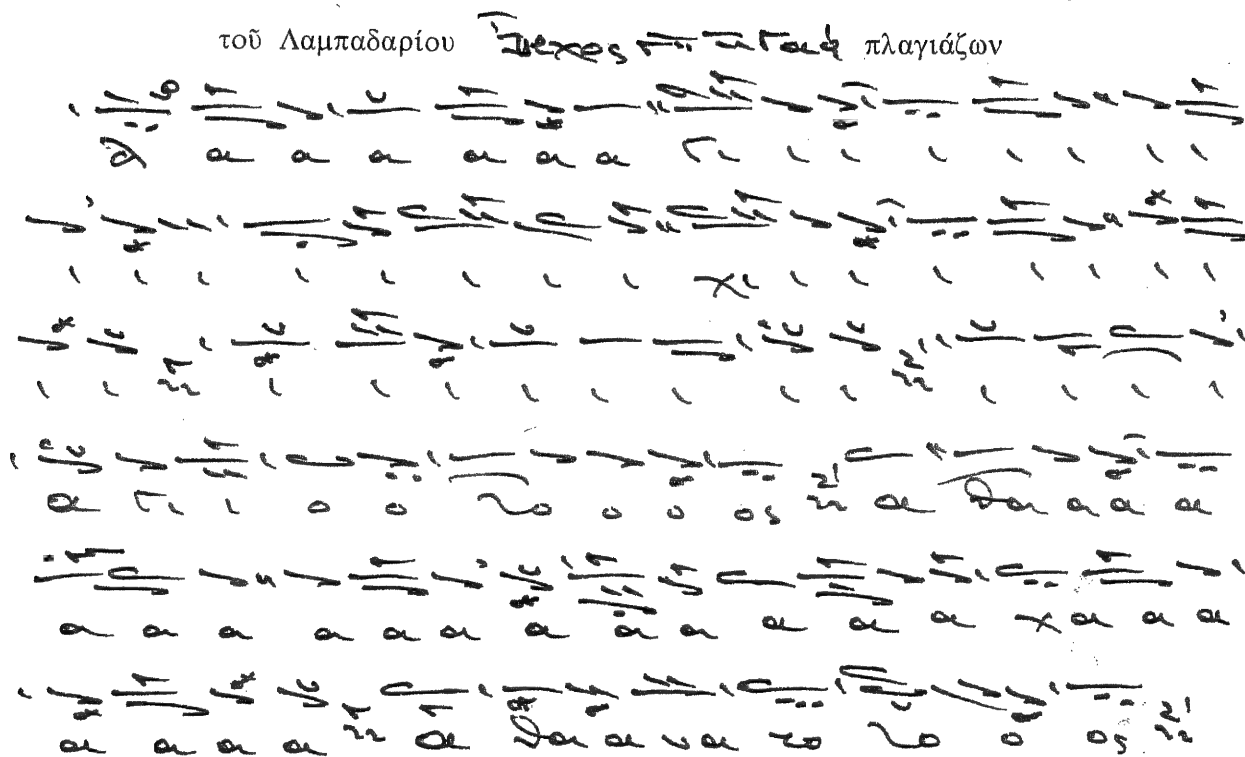 τοῦ Λαμπαδαρίου Ἦχος πλαγιάζων
α α α α α α α γι ι ι ι ι ι ι ι
ι ι ι ι ι ι ι ι χι ι ι ι ι ι ι ι
ι ι ι ι ι ι ι ι ι ι ι ι ι ι
α γι ι ο ο ο ο ος α θα α α α
α α α α α α α α α α α α χα α α
α α α α α θα α να το ο ος